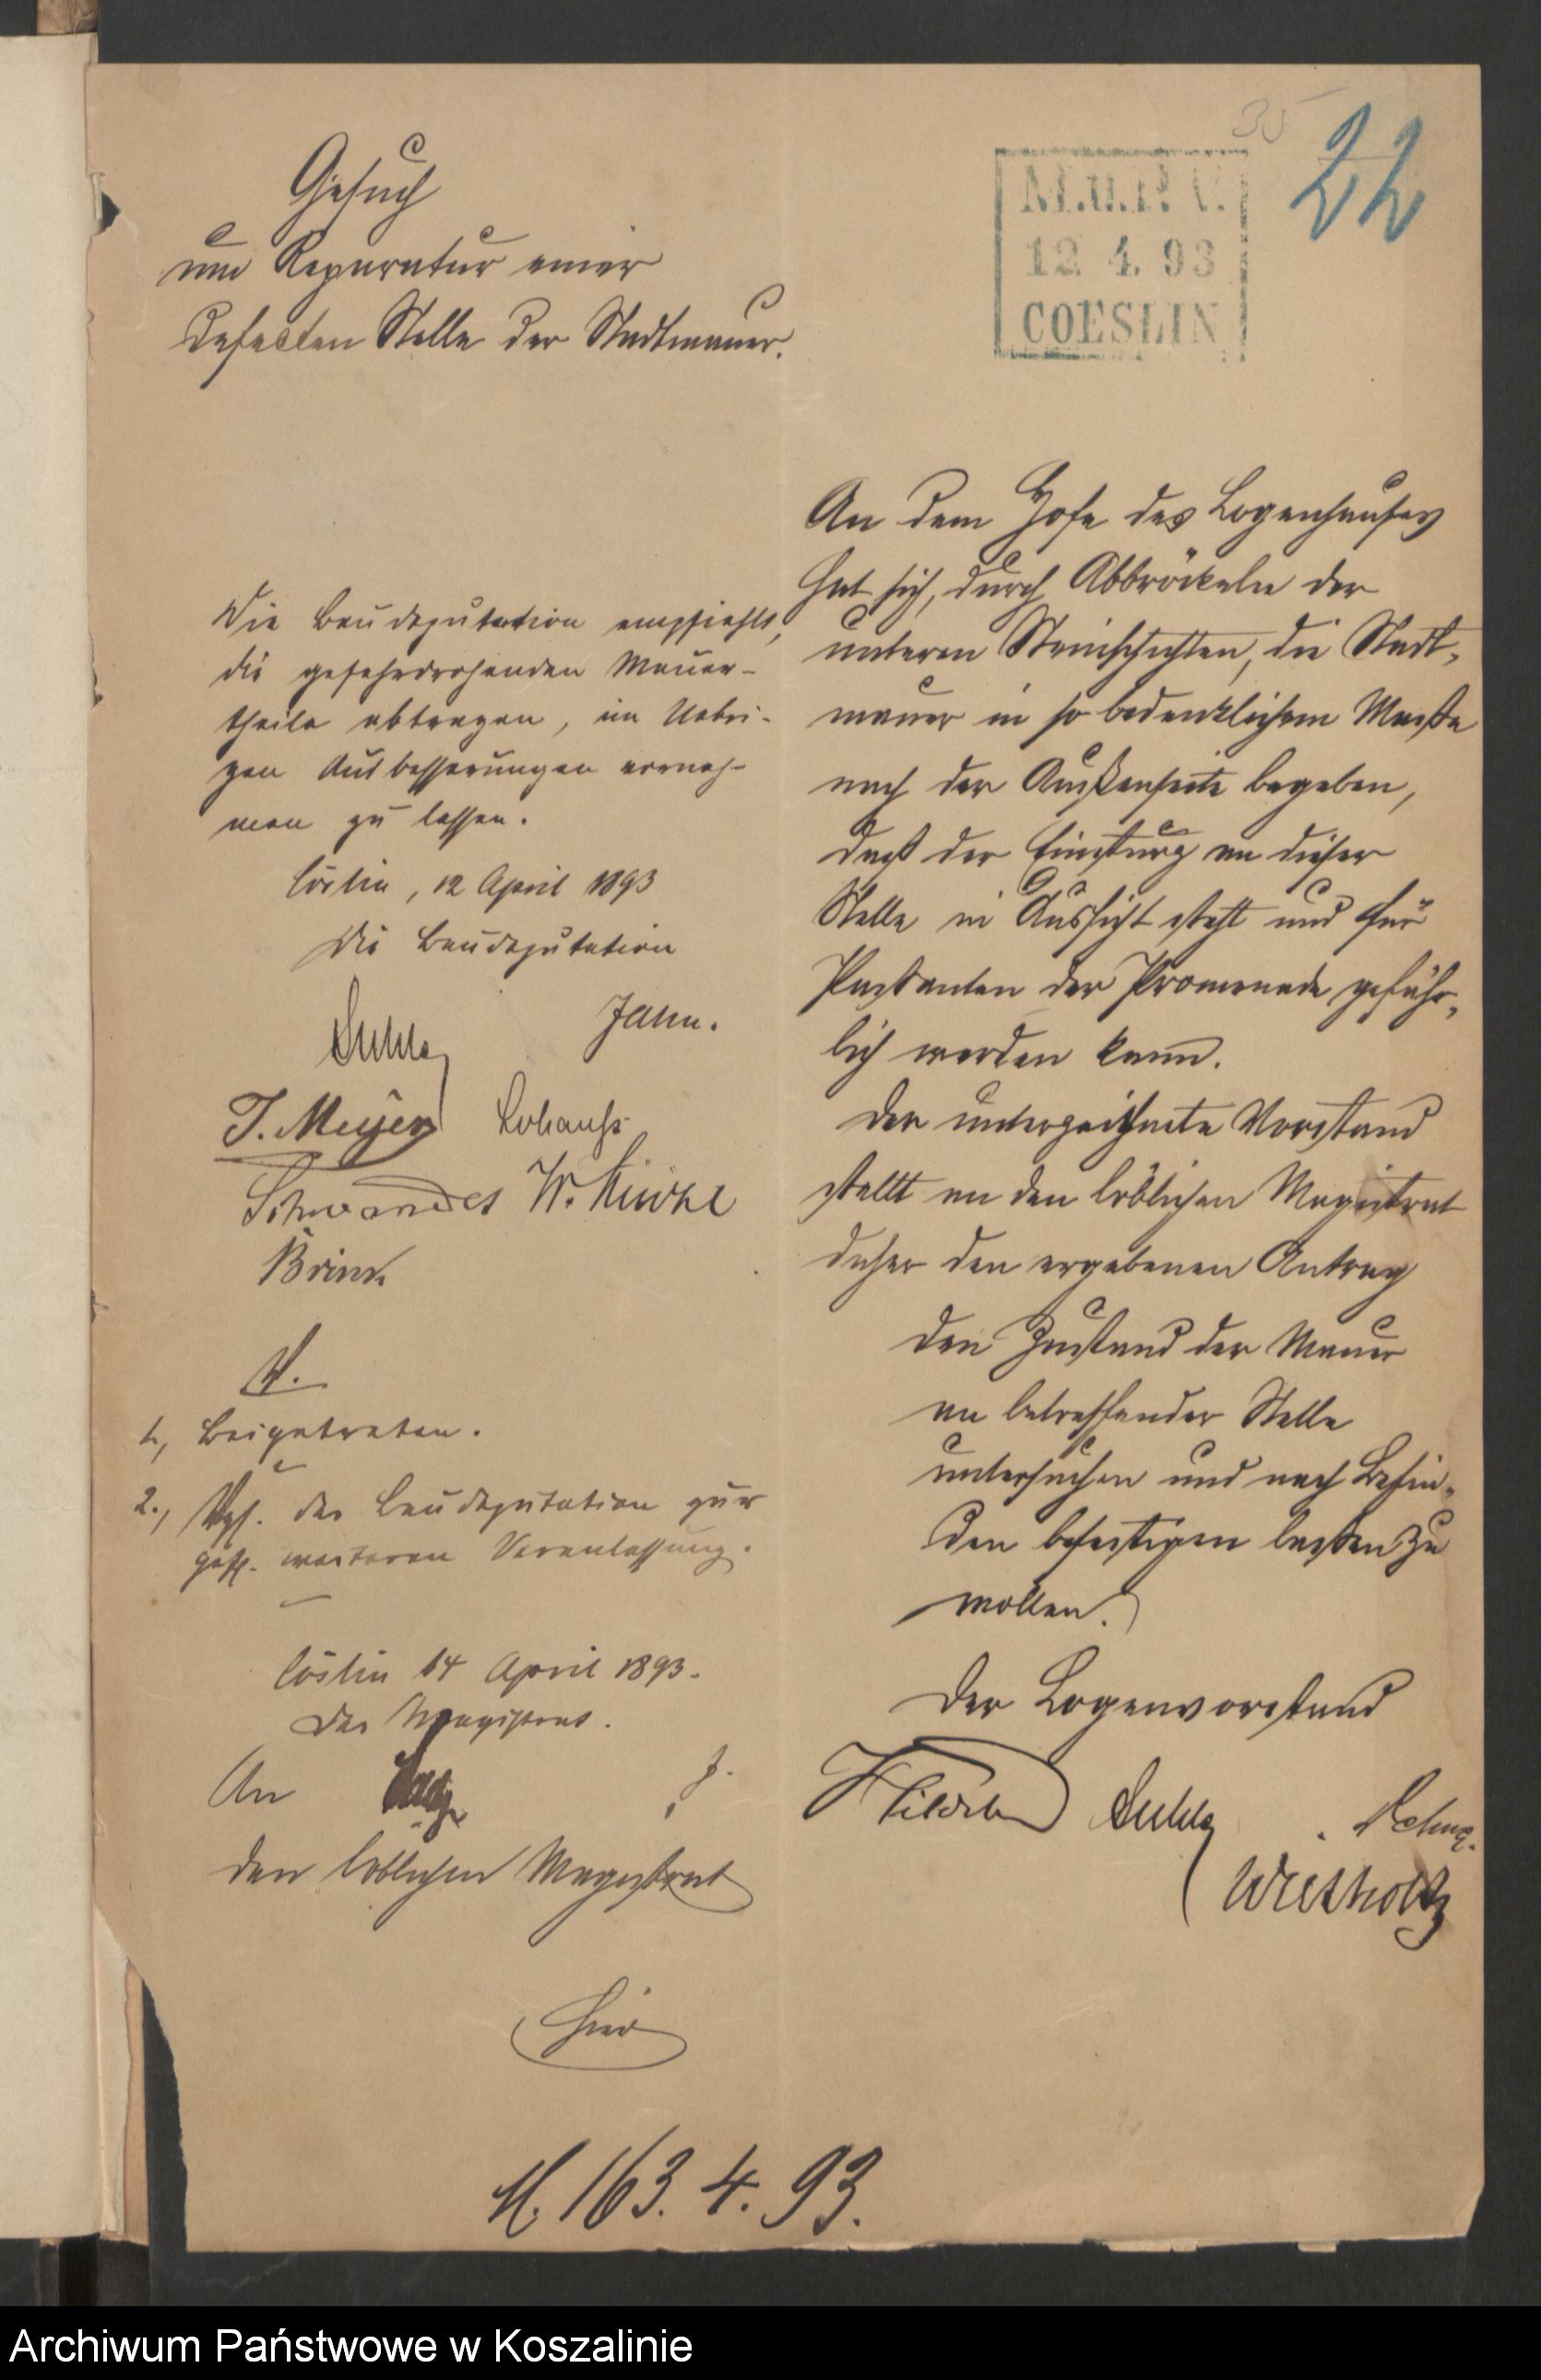 35
22
M.u.P.V.
12. 4. 93
COESLIN
Gesuch
um Reparatur einer
defekten Stelle der Stadtmauer.
An dem Hofe des Logenhauses
hat sich, durch Abbröckeln der
unteren Steinschichten, die Stadt-
mauer in so bedenklichem Maaße
nach der Außenseite begeben,
daß der Einsturz an dieser
Stelle in Aussicht steht und für
Passanten der Promenade gefähr-
lich werden kann.
Der unterzeichnete Vorstand
stellt an den löblichen Magistrat
daher den ergebenen Antrag
den Zustand der Mauer
an betreffender Stelle
untersuchen und nach Befin-
den befestigen lassen zu
wollen.
Der Logenvorstand
Westholtz
Die Baudeputation empfiehlt,
die gefahrdrohenden Mauer-
theile abtragen, im Uebri-
gen Ausbesserungen vorneh-
men zu lassen.
Cöslin, 12 April 1893
Die Baudeputation
Jahn.
T. Meyer
Schwandes
Brink
V.
1., Beigetreten.
2., der Baudeputation zur
gefl. weiteren Veranlassung.
Cöslin 14 April 1893.
Der Magistrat.
An
den löblichen Magistrat
hier
M. 163. 4. 93.
Archiwum Państwowe w Koszalinie